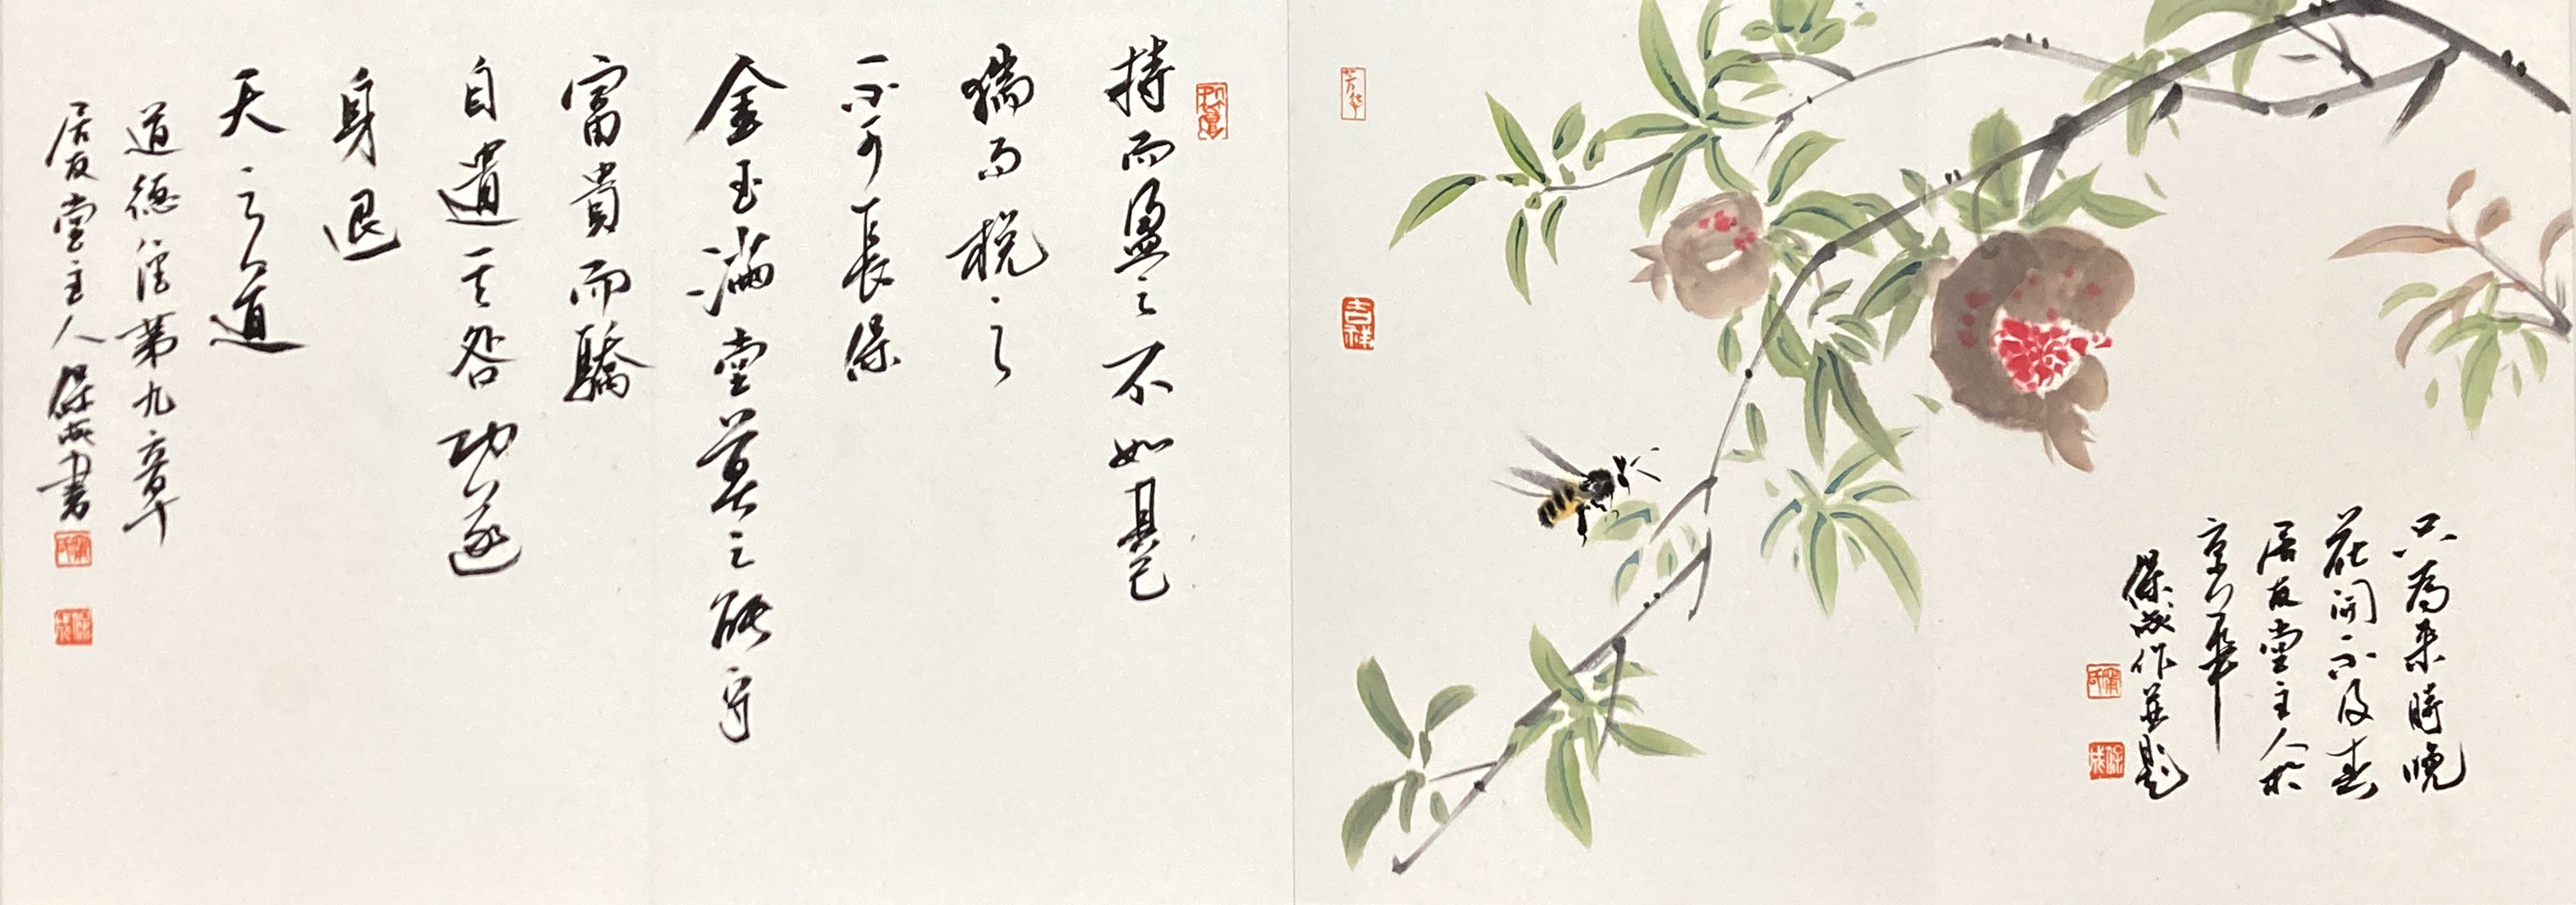 只為來時晚
花開不及春
居友堂主人於
京華
保成作並題
保成
吉祥
持而盈之不如其已
揣而梲之
不可長保
金玉滿堂莫之能守
富貴而驕
自遺其咎功遂
身退
天之道
道德經第九章
居友堂主人保成書
保成